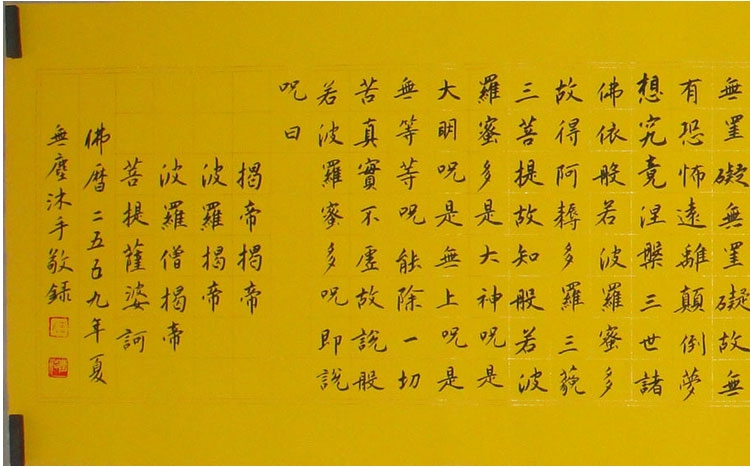 無罣礙無罣礙故無
有恐怖遠離顛倒夢
想究竟涅槃三世諸
佛依般若波羅蜜多
故得阿耨多羅三藐
三菩提故知般若波
羅蜜多是大神呪是
大明呪是無上呪是
無等等呪能除一切
苦真實不虛故說般
若波羅蜜多呪即說
呪曰
揭帝揭帝
波羅揭帝
波羅僧揭帝
菩提薩婆訶
佛曆二五五九年夏
無塵沐手敬録